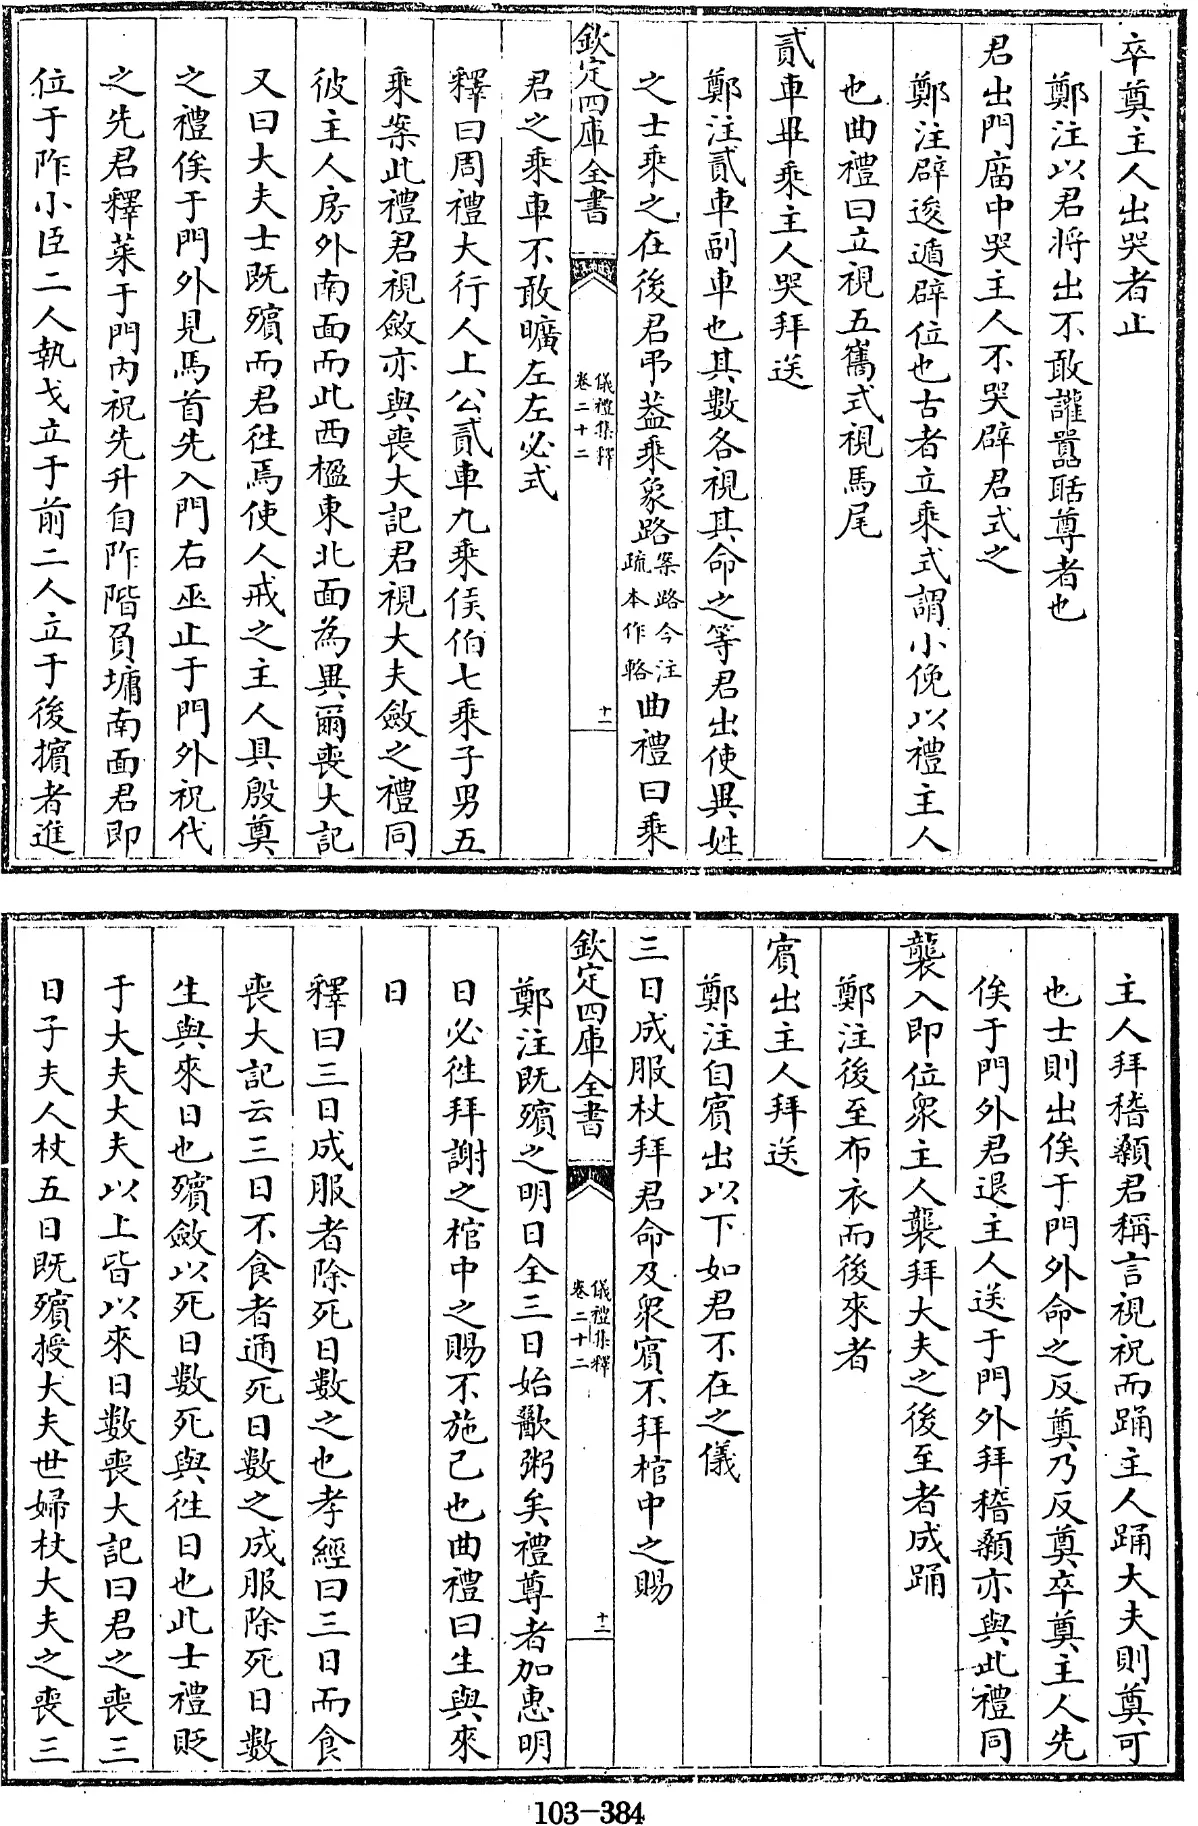 卒奠主人出哭者止
鄭注以君將出不敢讙囂聒尊者也
君出門廟中哭主人不哭辟君式之
鄭注辟逡遁辟位也古者立乗式謂小俛以禮主人
也曲禮曰立視五巂式視馬尾
貳車畢乗主人哭拜送
鄭注貳車副車也其數各視其命之等君出使異姓
之士乗之在後君弔蓋乗象路案路今注疏本作輅曲禮曰乗
欽定四庫全書
儀禮集釋
卷二十二
十一
君之乗車不敢曠左左必式
釋曰周禮大行人上公貳車九乗侯伯七乗子男五
乗案此禮君視斂亦與喪大記君視大夫斂之禮同
彼主人房外南面而此西楹東北面為異爾喪大記
又曰大夫士既殯而君徃焉使人戒之主人具殷奠
之禮俟于門外見馬首先入門右巫止于門外祝代
之先君釋菜于門内祝先升自阼階負墉南面君即
位于阼小臣二人執戈立于前二人立于後擯者進
主人拜稽顙君稱言視祝而踊主人踊大夫則奠可
也士則出俟于門外命之反奠乃反奠卒奠主人先
俟于門外君退主人送于門外拜稽顙亦與此禮同
襲入即位衆主人襲拜大夫之後至者成踊
鄭注後至布衣而後來者
賓出主人拜送
鄭注自賓出以下如君不在之儀
三日成服杖拜君命及衆賓不拜棺中之賜
欽定四庫全書
儀禮集釋
卷二十二
十二
鄭注既殯之明日全三日始歠粥矣禮尊者加惠明
日必徃拜謝之棺中之賜不施己也曲禮曰生與來
日
釋曰三日成服者除死日數之也孝經曰三日而食
喪大記云三日不食者通死日數之成服除死日數
生與來日也殯斂以死日數死與徃日也此士禮貶
于大夫大夫以上皆以來日數喪大記曰君之喪三
日子夫人杖五日既殯授大夫世婦杖大夫之喪三
103-384